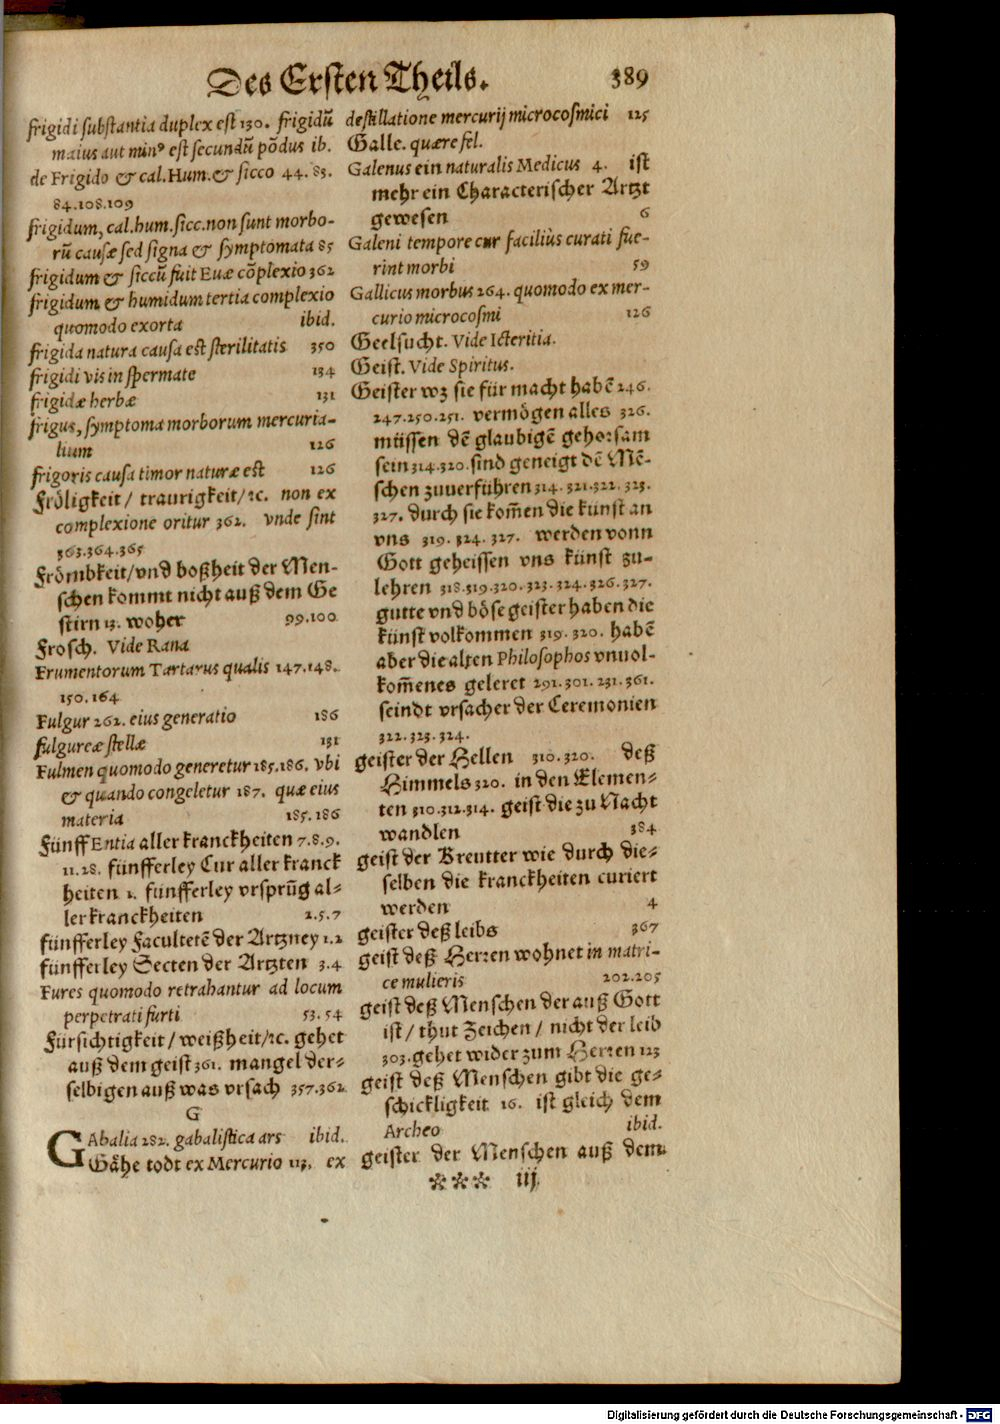 Des Ersten Theils. 389
frigidi substantia duplex est 130. frigidũ
maius aut minꝰ est secundũ põdus ib.
de Frigido & cal. Hum. & sicco 44. 83.
84.108.109
frigidum, cal.hum.sicc.non sunt morbo-
rũ causæ sed signa & symptomata 85
frigidum & siccũ fuit Euæ cõplexio 362
frigidum & humidum tertia complexio
quomodo exorta ibid.
frigida natura causa est sterilitatis 350
frigidi vis in spermate 134
frigidæ herbæ 131
frigus, symptoma morborum mercuria-
lium 126
frigoris causa timor naturæ est 126
Fröligkeit/ traurigkeit/ꝛc. non ex
complexione oritur 362. vnde sint
363.364.365
Frömbkeit/vnd boßheit der Men-
schen kommt nicht auß dem Ge
stirn 13. woher 99.100
Frosch. Vide Rana
Frumentorum Tartarus qualis 147.148.
150.164
Fulgur 262. eius generatio 186
fulgureæ stellæ 131
Fulmen quomodo generetur 185.186. vbi
& quando congeletur 187. quæ eius
materia 185.186
Fünff Entia aller kranckheiten 7.8.9.
11.28. fünfferley Cur aller kranck
heiten 1. fünfferley vrsprũg al-
ler kranckheiten 2.5.7
fünfferley Facultetẽ der Artzney 1.2
fünfferley Secten der Artzten 3.4
Fures quomodo retrahantur ad locum
perpetrati furti 53.54
Fürsichtigkeit/ weißheit/ꝛc. gehet
auß dem geist 361. mangel der-
selbigen auß was vrsach 357.362
G
GAbalia 282. gabalistica ars ibid.
Gähe todt ex Mercurio 113. ex
destillatione mercurij microcosmici 125
Galle. quære fel.
Galenus ein naturalis Medicus 4. ist
mehr ein Characterischer Artzt
gewesen 6
Galeni tempore cur faciliùs curati fue-
rint morbi 59
Gallicus morbus 264. quomodo ex mer-
curio microcosmi 126
Geelsucht. Vide Icteritia.
Geist. Vide Spiritus.
Geister wz sie für macht habẽ 246.
247.250.251. vermögen alles 326.
müssen dẽ glaubigẽ gehorsam
sein 314.320. sind geneigt dẽ Mẽ-
schen zuuerführen 314. 321.322. 323.
327. durch sie kom̃en die künst an
vns 319. 324. 327. werden vonn
Gott geheissen vns künst zu-
lehren 318.319.320.323.324.326.327.
gutte vnd böse geister haben die
künst volkommen 319. 320. habẽ
aber die alten Philosophos vnuol-
kom̃enes geleret 291.301.231.361.
seindt vrsacher der Ceremonien
322.323.324.
geister der Hellen 310.320. deß
Himmels 320. in den Elemen-
ten 310.312.314. geist die zu Nacht
wandlen 384
geist der Kreutter wie durch die-
selben die kranckheiten curiert
werden 4
geister deß leibs 367
geist deß Herren wohnet in matri-
ce mulieris 202.205
geist deß Menschen der auß Gott
ist/ thut Zeichen/ nicht der leib
303. gehet wider zum Herren 123
geist deß Menschen gibt die ge-
schickligkeit 16. ist gleich dem
Archeo ibid.
geister der Menschen auß dem
*** iij
Digitalisierung gefördert durch die Deutsche Forschungsgemeinschaft - DFG